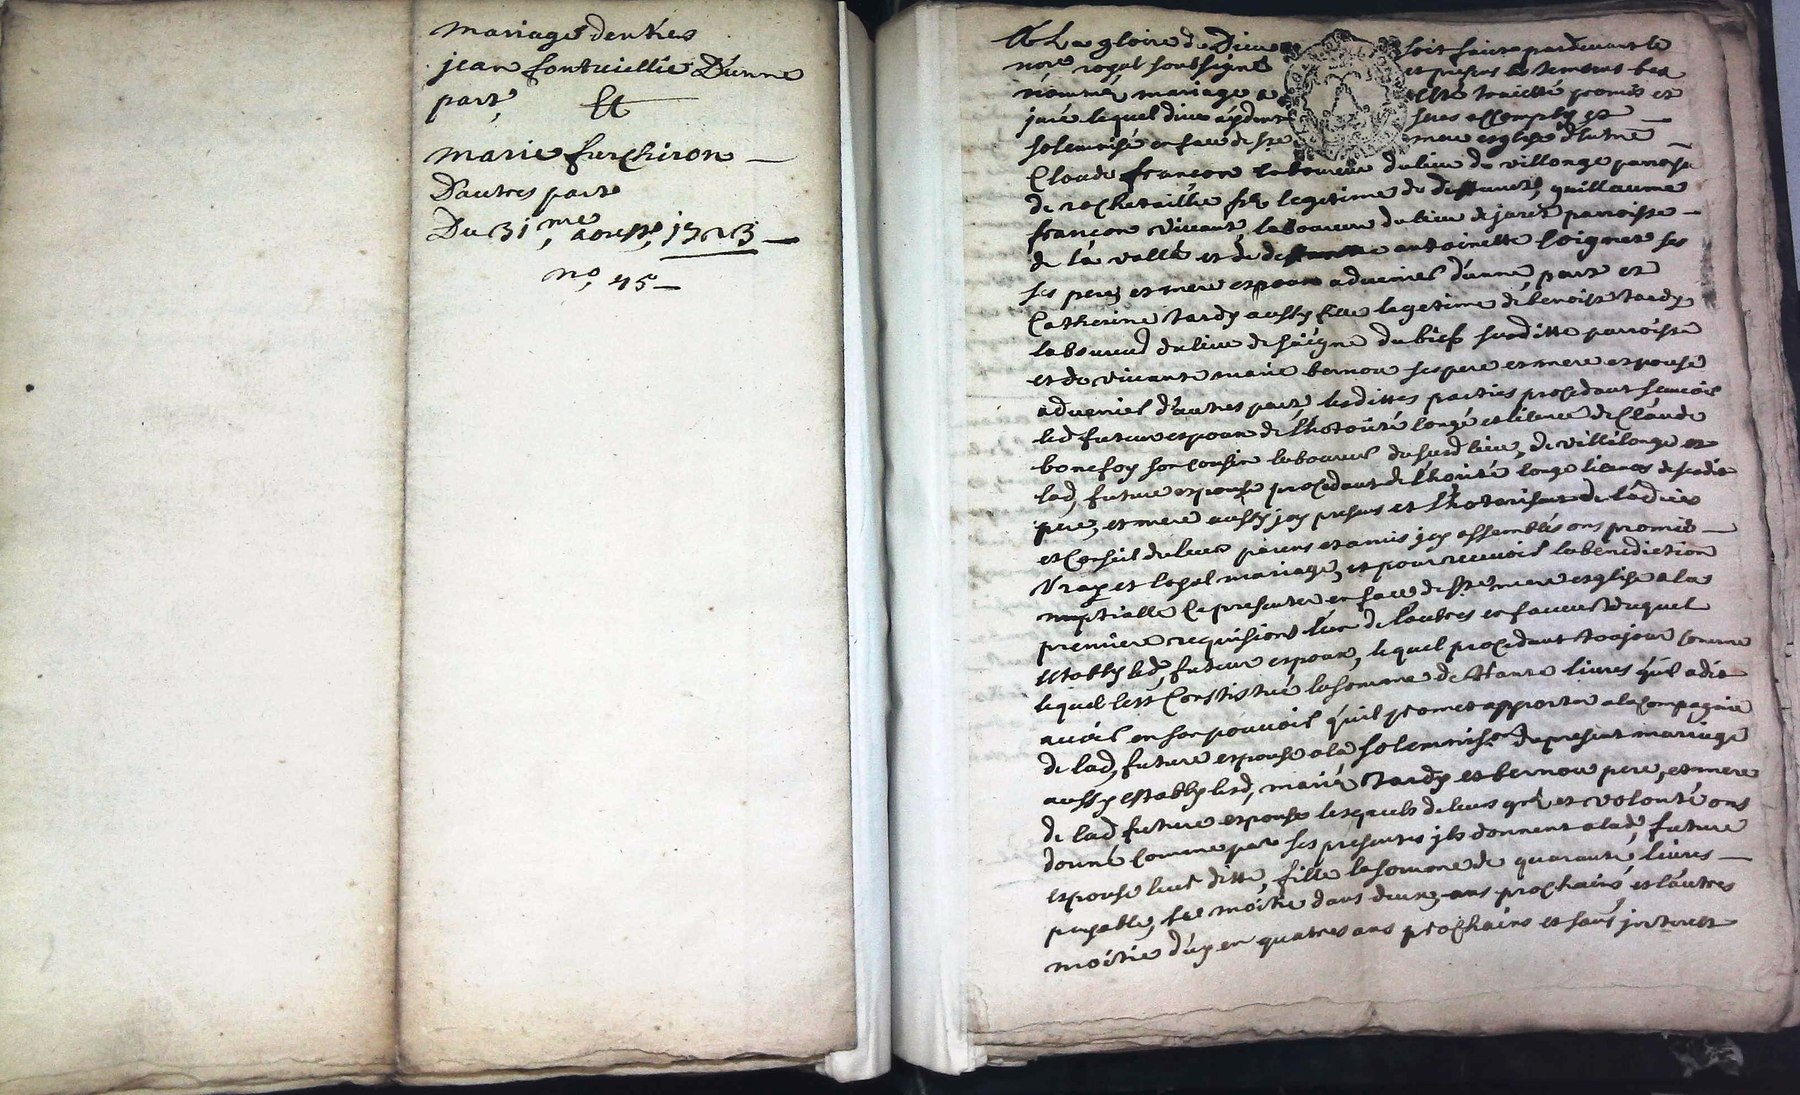 mariage dentres
jean fontvieillie D'unne
part, Et
marie furchiron
D'autres part
Du 31me aoust, 1723
no, 45
A La gloire de Dieu soit faitte pardevant le
nore royal soubsigné et presens les temoins bas
nommés mariage a esté traitté promis et
juré lequel dieu aydant sera accomply et
solemnisé en face de ste mere esglise d'Entre
Claude françon laboureur du lieu de villonge parroisse
de rochetaillie fils legetime de deffunct, guillaume
françon vivant, laboureur du lieu de jaret parroisse
de la valla et de deffuncte antoinette loignet ses
ses pere, et mere espoux advenir d'unne part et
Catherine tardy aussy fille legetime de benoist tardy
laboureur du lieu de saigne du bief susditte parroisse
et de vivante marie bernou ses pere et mere espouse
advenir d'autres part lesdittes parties procedant sçavoir
led futeur espoux de l'hotorité congé et licence de Claude
bonefoy son cousin laboureur du susd lieu, de villilonge et
lad, future espouse procedant de l'horité conge licences de sesdits
pere, et mere aussy jcy presens et l'hotorisant de l'advis
et Conseil de leurs parens et amis jcy assemblés ons promis
vray et loyal mariage, et pour recevoir la benediction
nuptialle Ce presenter en face de ste mere esglise a la
premiere requisions l'un de l'autres en faveur duquel
estably led, futeur espoux, lequel procedant toujour comme
lequel sest Constistué la somme de trante livres qu'il a dit
avoir en son pouvoir qu'il promet apporter a la compagnie
de lad, future espouse a la solemnison du present mariage
aussy estably lesd, mariés tardy et bernou pere, et mere
de lad future espouse lesquels de leurs gré et volonté ons
donné comme par ses presentes jls donnent a lad, future
espouse leur ditte, fille la somme de quarante livres
payable, la moitie dans deux ans prochains et l'autres
moitie d'uy en quatres ans prochains et sans jnterest